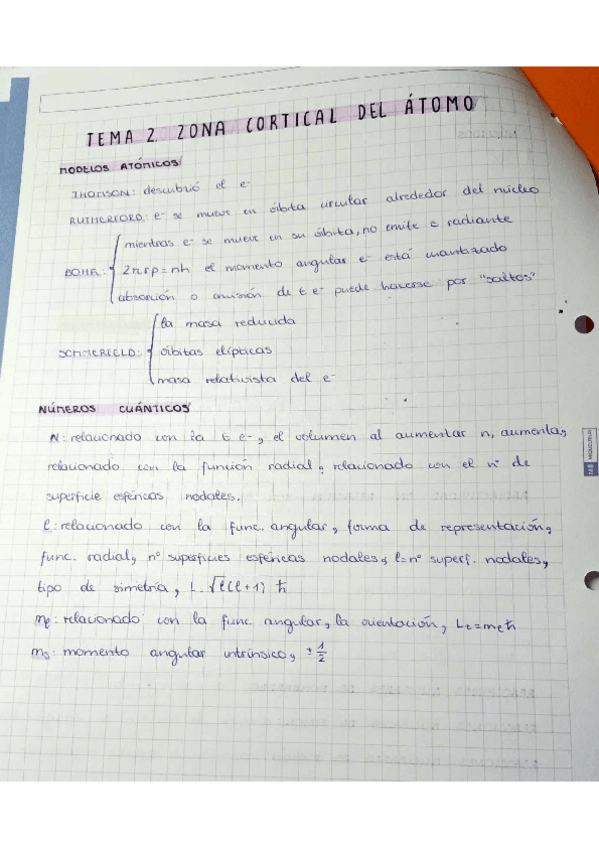 TEMA 2. ZONA CORTICAL DEL ÁTOMO
MODELOS ATÓMICOS
THOMSON: descubrió el e-
RUTHERFORD: e- se mueve en órbita circular alrededor del núcleo
mientras e- se mueve en su órbita, no emite e radiante
BOHR: 2πrp = nh el momento angular e- está cuantizado
absorción o emisión de E e- puede hacerse por "saltos"
la masa reducida
SOMMERFELD: órbitas elípticas
masa relativista del e-
NÚMEROS CUÁNTICOS
N: relacionado con la E e-, el volumen al aumentar n, aumenta,
relacionado con la función radial, relacionado con el nº de
superficie esféricas nodales.
l: relacionado con la func. angular, forma de representación,
func. radial, nº superficies esféricas nodales, l = nº superf. nodales,
tipo de simetría, L = √l(l+1) ħ
ml: relacionado con la func angular, la orientación, Lz = mlħ
ms: momento angular intrínsico, ± 1/2